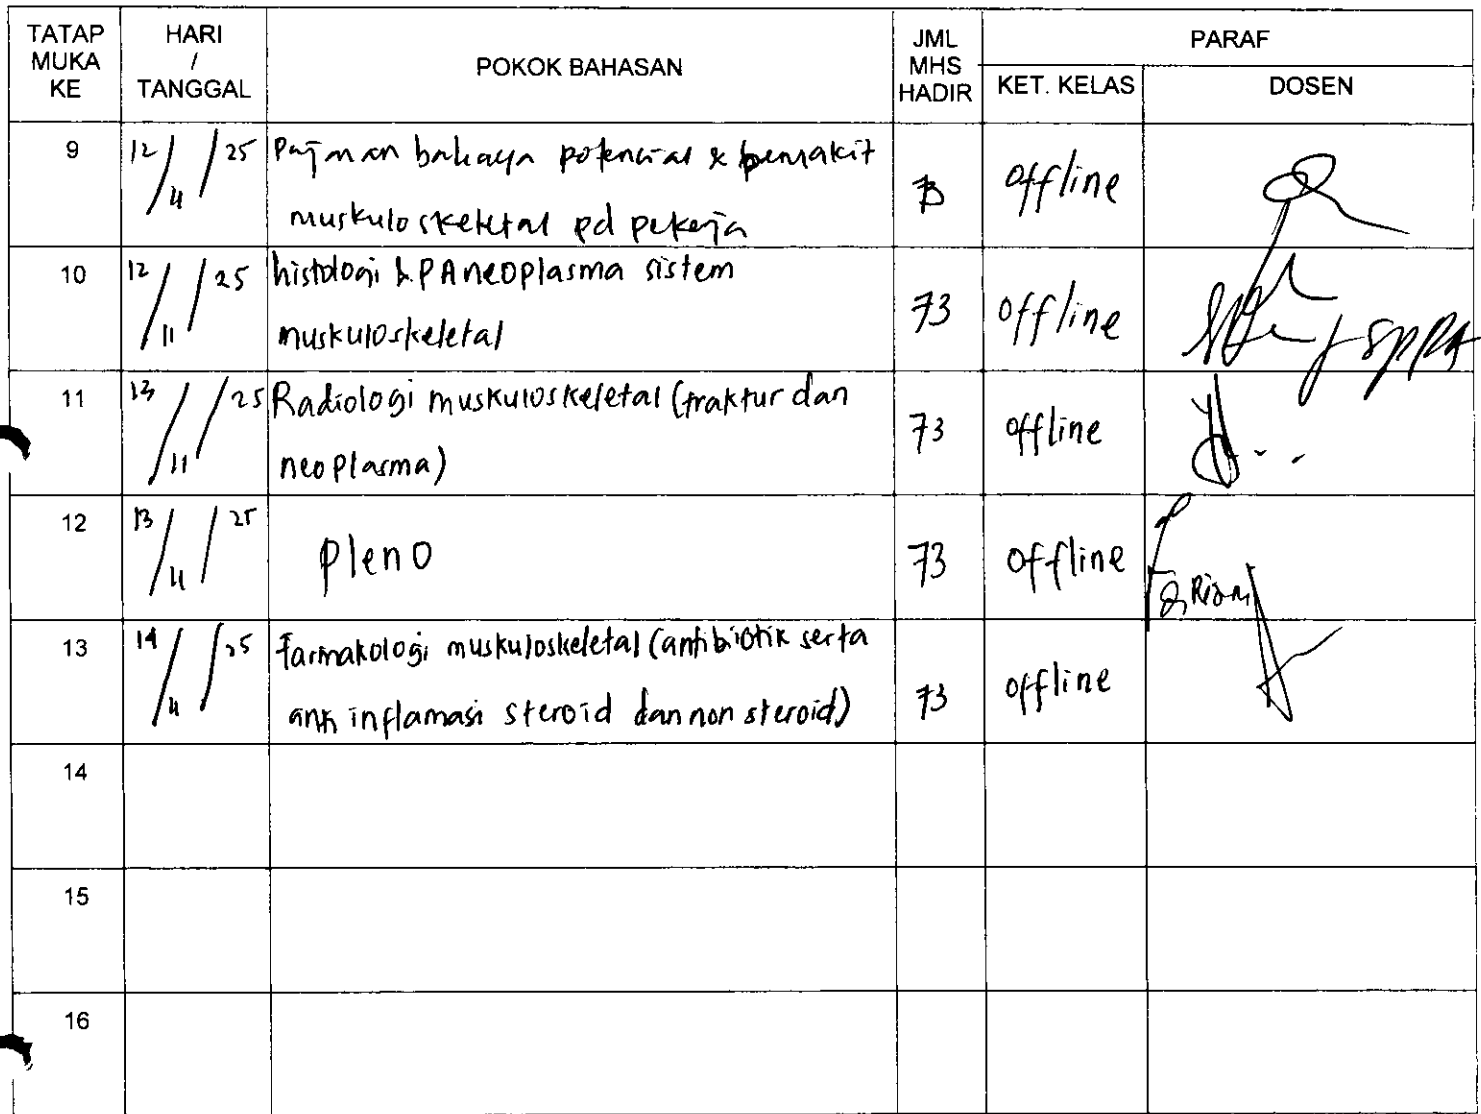 TATAP MUKA KE HARI / TANGGAL POKOK BAHASAN JML MHS HADIR PARAF
KET. KELAS DOSEN
9 12/11/25 Pajanan bahaya potensial & penyakit 73 offline
muskuloskeletal pd pekerja
10 12/11/25 histologi & PA neoplasma sistem 73 offline
muskuloskeletal SPPA
11 13/11/25 Radiologi muskuloskeletal (fraktur dan 73 offline
neoplasma)
12 13/11/25 pleno 73 offline
13 14/11/25 farmakologi muskuloskeletal (antibiotik serta 73 offline
anti inflamasi steroid dan non steroid)
14
15
16